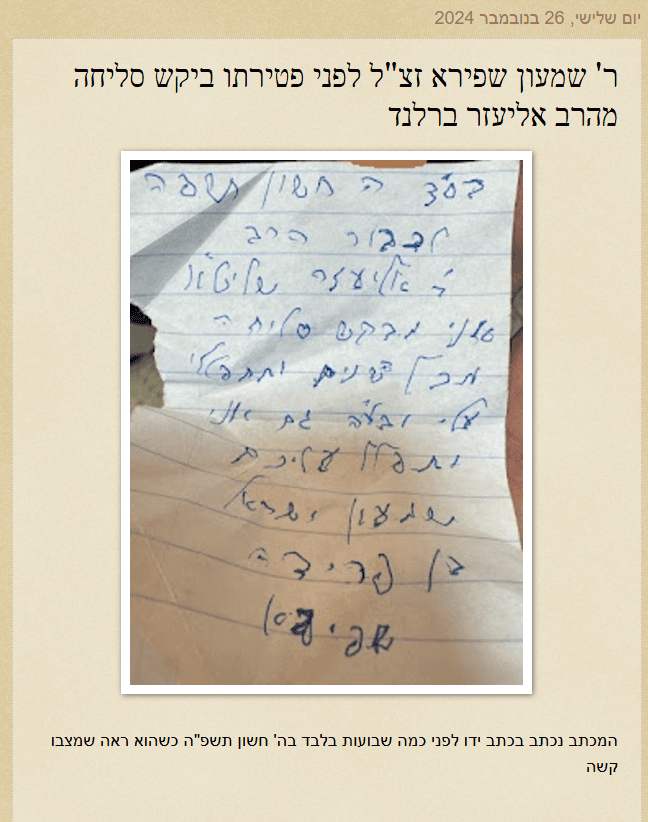 יום שלישי, 26 בנובמבר 2024
ר' שמעון שפירא זצ"ל לפני פטירתו ביקש סליחה
מהרב אליעזר ברלנד
בס"ד ה חשון תשפה
לכבוד הרב
ר אליעזר שליט"א
אני מבקש סליחה
מכל השנים ותתפללו
עלי ובע"ה גם אני
יתפלל עליכם
שמעון ישראל
בן פרידה
שפירא
המכתב נכתב בכתב ידו לפני כמה שבועות בלבד בה' חשון תשפ"ה כשהוא ראה שמצבו
קשה